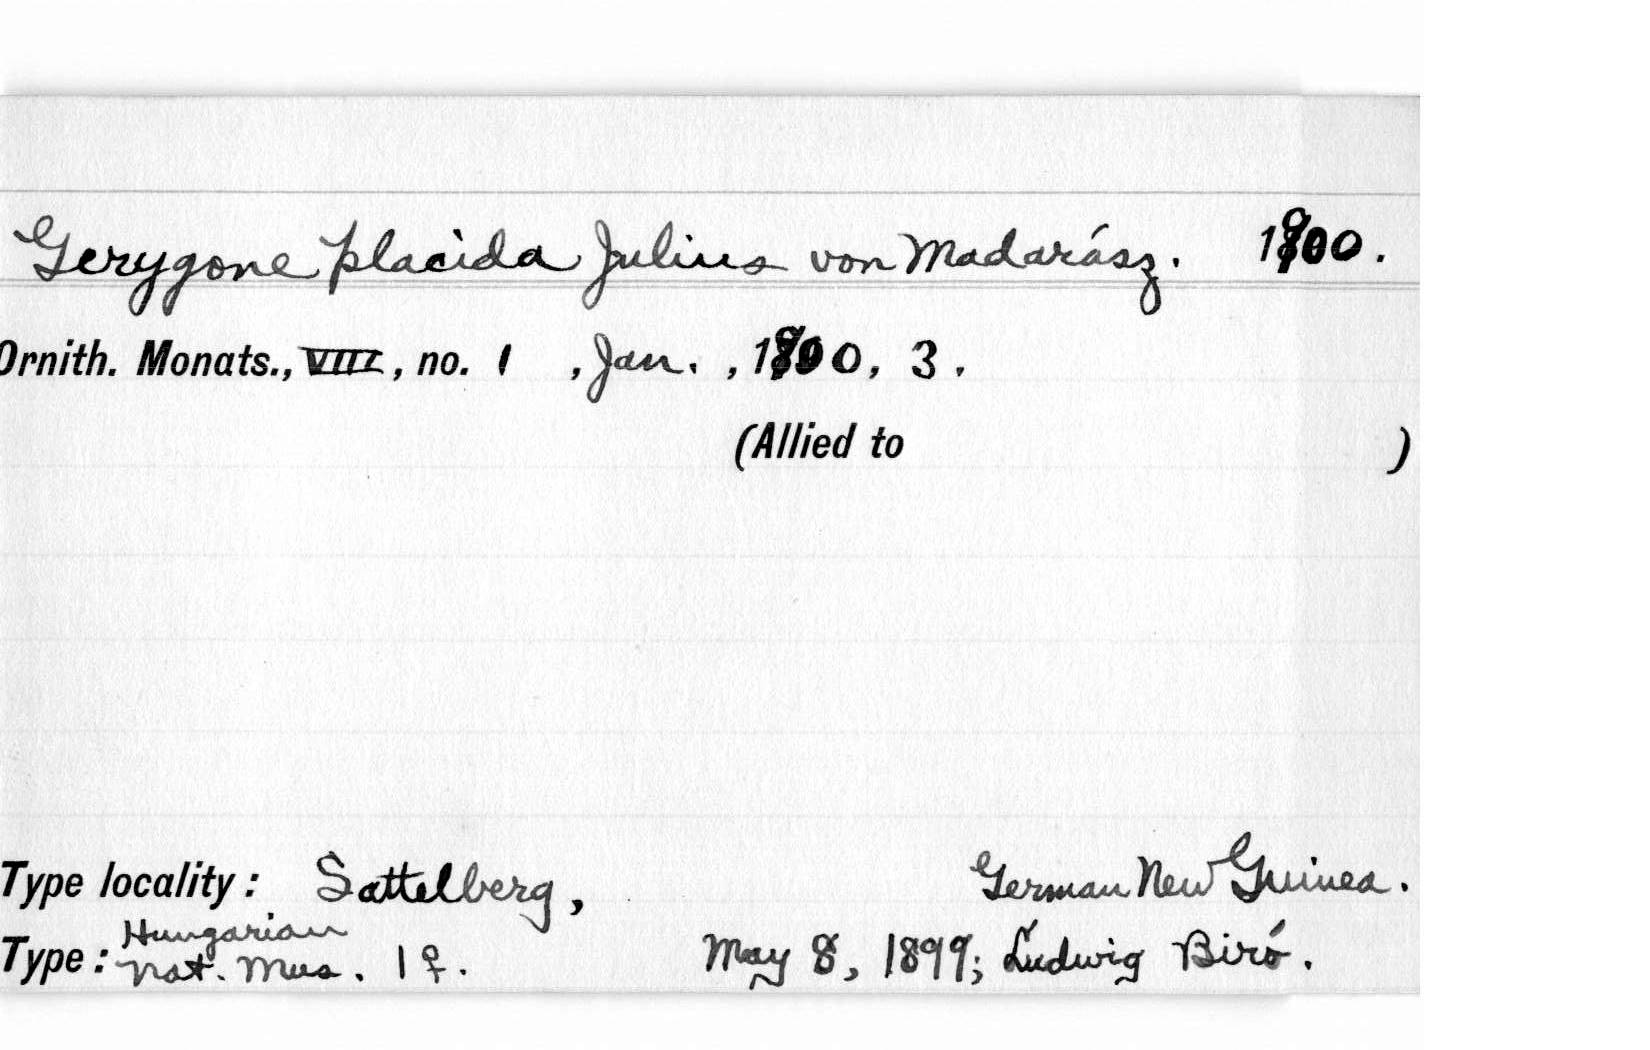 Gerygone placida Julius von Madarász. 1900.
Ornith. Monats., VIII, no. 1 , Jan. , 1900, 3.
(Allied to )
Type locality: Sattelberg, German New Guinea.
Type: Hungarian Nat. Mus. 1♀. May 8, 1899; Ludwig Biró.